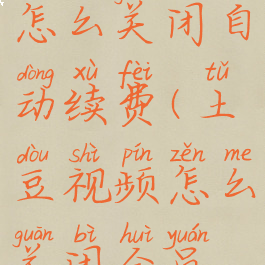 怎么关闭自
dòng xù fèi tǔ
动续费(土
dòu shì pín zěn me
豆视频怎么
guān bì huì yuán
关闭会员